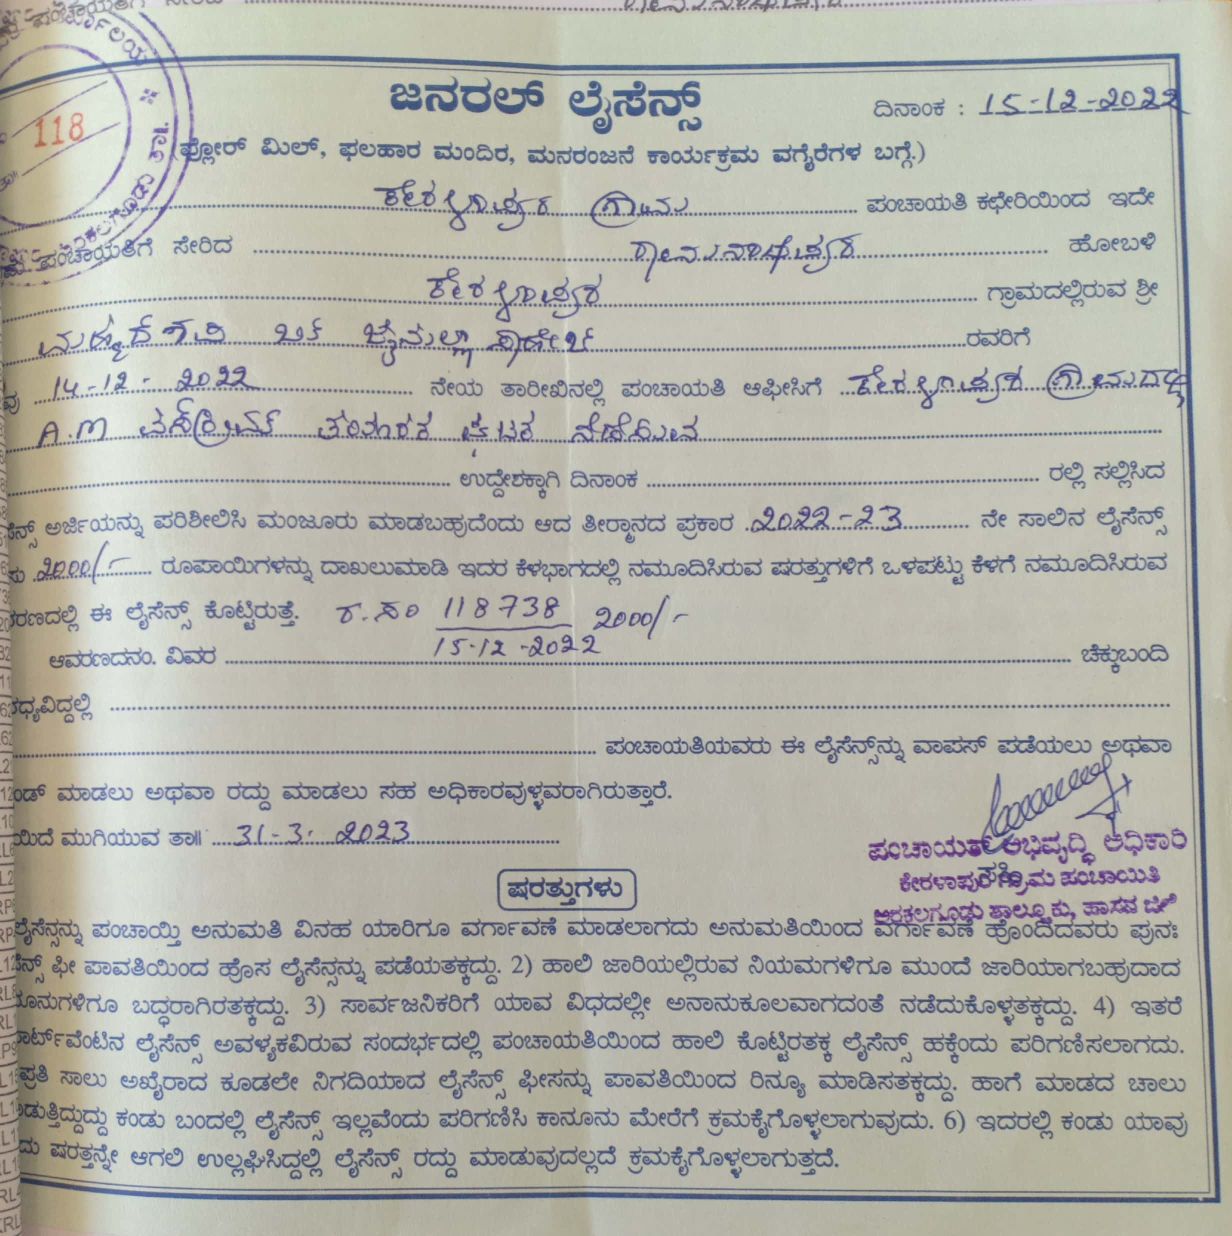 ಜನರಲ್ ಲೈಸೆನ್ಸ್
ದಿನಾಂಕ : 15-12-2022
118
(ಫ್ಲೋರ್ ಮಿಲ್, ಫಲಹಾರ ಮಂದಿರ, ಮನರಂಜನೆ ಕಾರ್ಯಕ್ರಮ ವಗೈರೆಗಳ ಬಗ್ಗೆ.)
ಕೇರಳಾಪುರ ಗ್ರಾಮ ಪಂಚಾಯತಿ ಕಛೇರಿಯಿಂದ ಇದೇ
ಪಂಚಾಯತಿಗೆ ಸೇರಿದ ರಾಮನಾಥಪುರ ಹೋಬಳಿ
ಕೇರಳಾಪುರ ಗ್ರಾಮದಲ್ಲಿರುವ ಶ್ರೀ
ಬಿನ್ ರವರಿಗೆ
14-12-2022 ನೇಯ ತಾರೀಖಿನಲ್ಲಿ ಪಂಚಾಯತಿ ಆಫೀಸಿಗೆ ಕೇರಳಾಪುರ ಗ್ರಾಮದಲ್ಲಿ
A.M
ಉದ್ದೇಶಕ್ಕಾಗಿ ದಿನಾಂಕ ರಲ್ಲಿ ಸಲ್ಲಿಸಿದ
ಅರ್ಜಿಯನ್ನು ಪರಿಶೀಲಿಸಿ ಮಂಜೂರು ಮಾಡಬಹುದೆಂದು ಆದ ತೀರ್ಮಾನದ ಪ್ರಕಾರ 2022-23 ನೇ ಸಾಲಿನ ಲೈಸೆನ್ಸ್
2000/- ರೂಪಾಯಿಗಳನ್ನು ದಾಖಲುಮಾಡಿ ಇದರ ಕೆಳಭಾಗದಲ್ಲಿ ನಮೂದಿಸಿರುವ ಷರತ್ತುಗಳಿಗೆ ಒಳಪಟ್ಟು ಕೆಳಗೆ ನಮೂದಿಸಿರುವ
ಈ ಲೈಸೆನ್ಸ್ ಕೊಟ್ಟಿರುತ್ತೆ. ರ.ಸಂ 118738 2000/-
15-12-2022
ಆವರಣದನಂ. ವಿವರ ಚೆಕ್ಕುಬಂದಿ
ಪಂಚಾಯತಿಯವರು ಈ ಲೈಸೆನ್ಸ್‌ನ್ನು ವಾಪಸ್ ಪಡೆಯಲು ಅಥವಾ
ಮಾಡಲು ಅಥವಾ ರದ್ದು ಮಾಡಲು ಸಹ ಅಧಿಕಾರವುಳ್ಳವರಾಗಿರುತ್ತಾರೆ.
ಮುಗಿಯುವ ತಾ॥ 31-3-2023
ಪಂಚಾಯತ್ ಅಭಿವೃದ್ಧಿ ಅಧಿಕಾರಿ
ಕೇರಳಾಪುರ ಗ್ರಾಮ ಪಂಚಾಯಿತಿ
ಅರಕಲಗೂಡು ತಾಲ್ಲೂಕು, ಹಾಸನ ಜಿಲ್ಲೆ
ಷರತ್ತುಗಳು
ಲೈಸೆನ್ಸನ್ನು ಪಂಚಾಯ್ತಿ ಅನುಮತಿ ವಿನಹ ಯಾರಿಗೂ ವರ್ಗಾವಣೆ ಮಾಡಲಾಗದು ಅನುಮತಿಯಿಂದ ವರ್ಗಾವಣೆ ಹೊಂದಿದವರು ಪುನಃ
ಫೀ ಪಾವತಿಯಿಂದ ಹೊಸ ಲೈಸೆನ್ಸನ್ನು ಪಡೆಯತಕ್ಕದ್ದು. 2) ಹಾಲಿ ಜಾರಿಯಲ್ಲಿರುವ ನಿಯಮಗಳಿಗೂ ಮುಂದೆ ಜಾರಿಯಾಗಬಹುದಾದ
ಬದ್ಧರಾಗಿರತಕ್ಕದ್ದು. 3) ಸಾರ್ವಜನಿಕರಿಗೆ ಯಾವ ವಿಧದಲ್ಲೀ ಅನಾನುಕೂಲವಾಗದಂತೆ ನಡೆದುಕೊಳ್ಳತಕ್ಕದ್ದು. 4) ಇತರೆ
ಲೈಸೆನ್ಸ್ ಅವಳ್ಯಕವಿರುವ ಸಂದರ್ಭದಲ್ಲಿ ಪಂಚಾಯತಿಯಿಂದ ಹಾಲಿ ಕೊಟ್ಟಿರತಕ್ಕ ಲೈಸೆನ್ಸ್ ಹಕ್ಕೆಂದು ಪರಿಗಣಿಸಲಾಗದು.
ಪ್ರತಿ ಸಾಲು ಅಖೈರಾದ ಕೂಡಲೇ ನಿಗದಿಯಾದ ಲೈಸೆನ್ಸ್ ಫೀಸನ್ನು ಪಾವತಿಯಿಂದ ರಿನ್ಯೂ ಮಾಡಿಸತಕ್ಕದ್ದು. ಹಾಗೆ ಮಾಡದ ಚಾಲು
ಕಂಡು ಬಂದಲ್ಲಿ ಲೈಸೆನ್ಸ್ ಇಲ್ಲವೆಂದು ಪರಿಗಣಿಸಿ ಕಾನೂನು ಮೇರೆಗೆ ಕ್ರಮಕೈಗೊಳ್ಳಲಾಗುವುದು. 6) ಇದರಲ್ಲಿ ಕಂಡು ಯಾವು
ಷರತ್ತನ್ನೇ ಆಗಲಿ ಉಲ್ಲಘಿಸಿದ್ದಲ್ಲಿ ಲೈಸೆನ್ಸ್ ರದ್ದು ಮಾಡುವುದಲ್ಲದೆ ಕ್ರಮಕೈಗೊಳ್ಳಲಾಗುತ್ತದೆ.